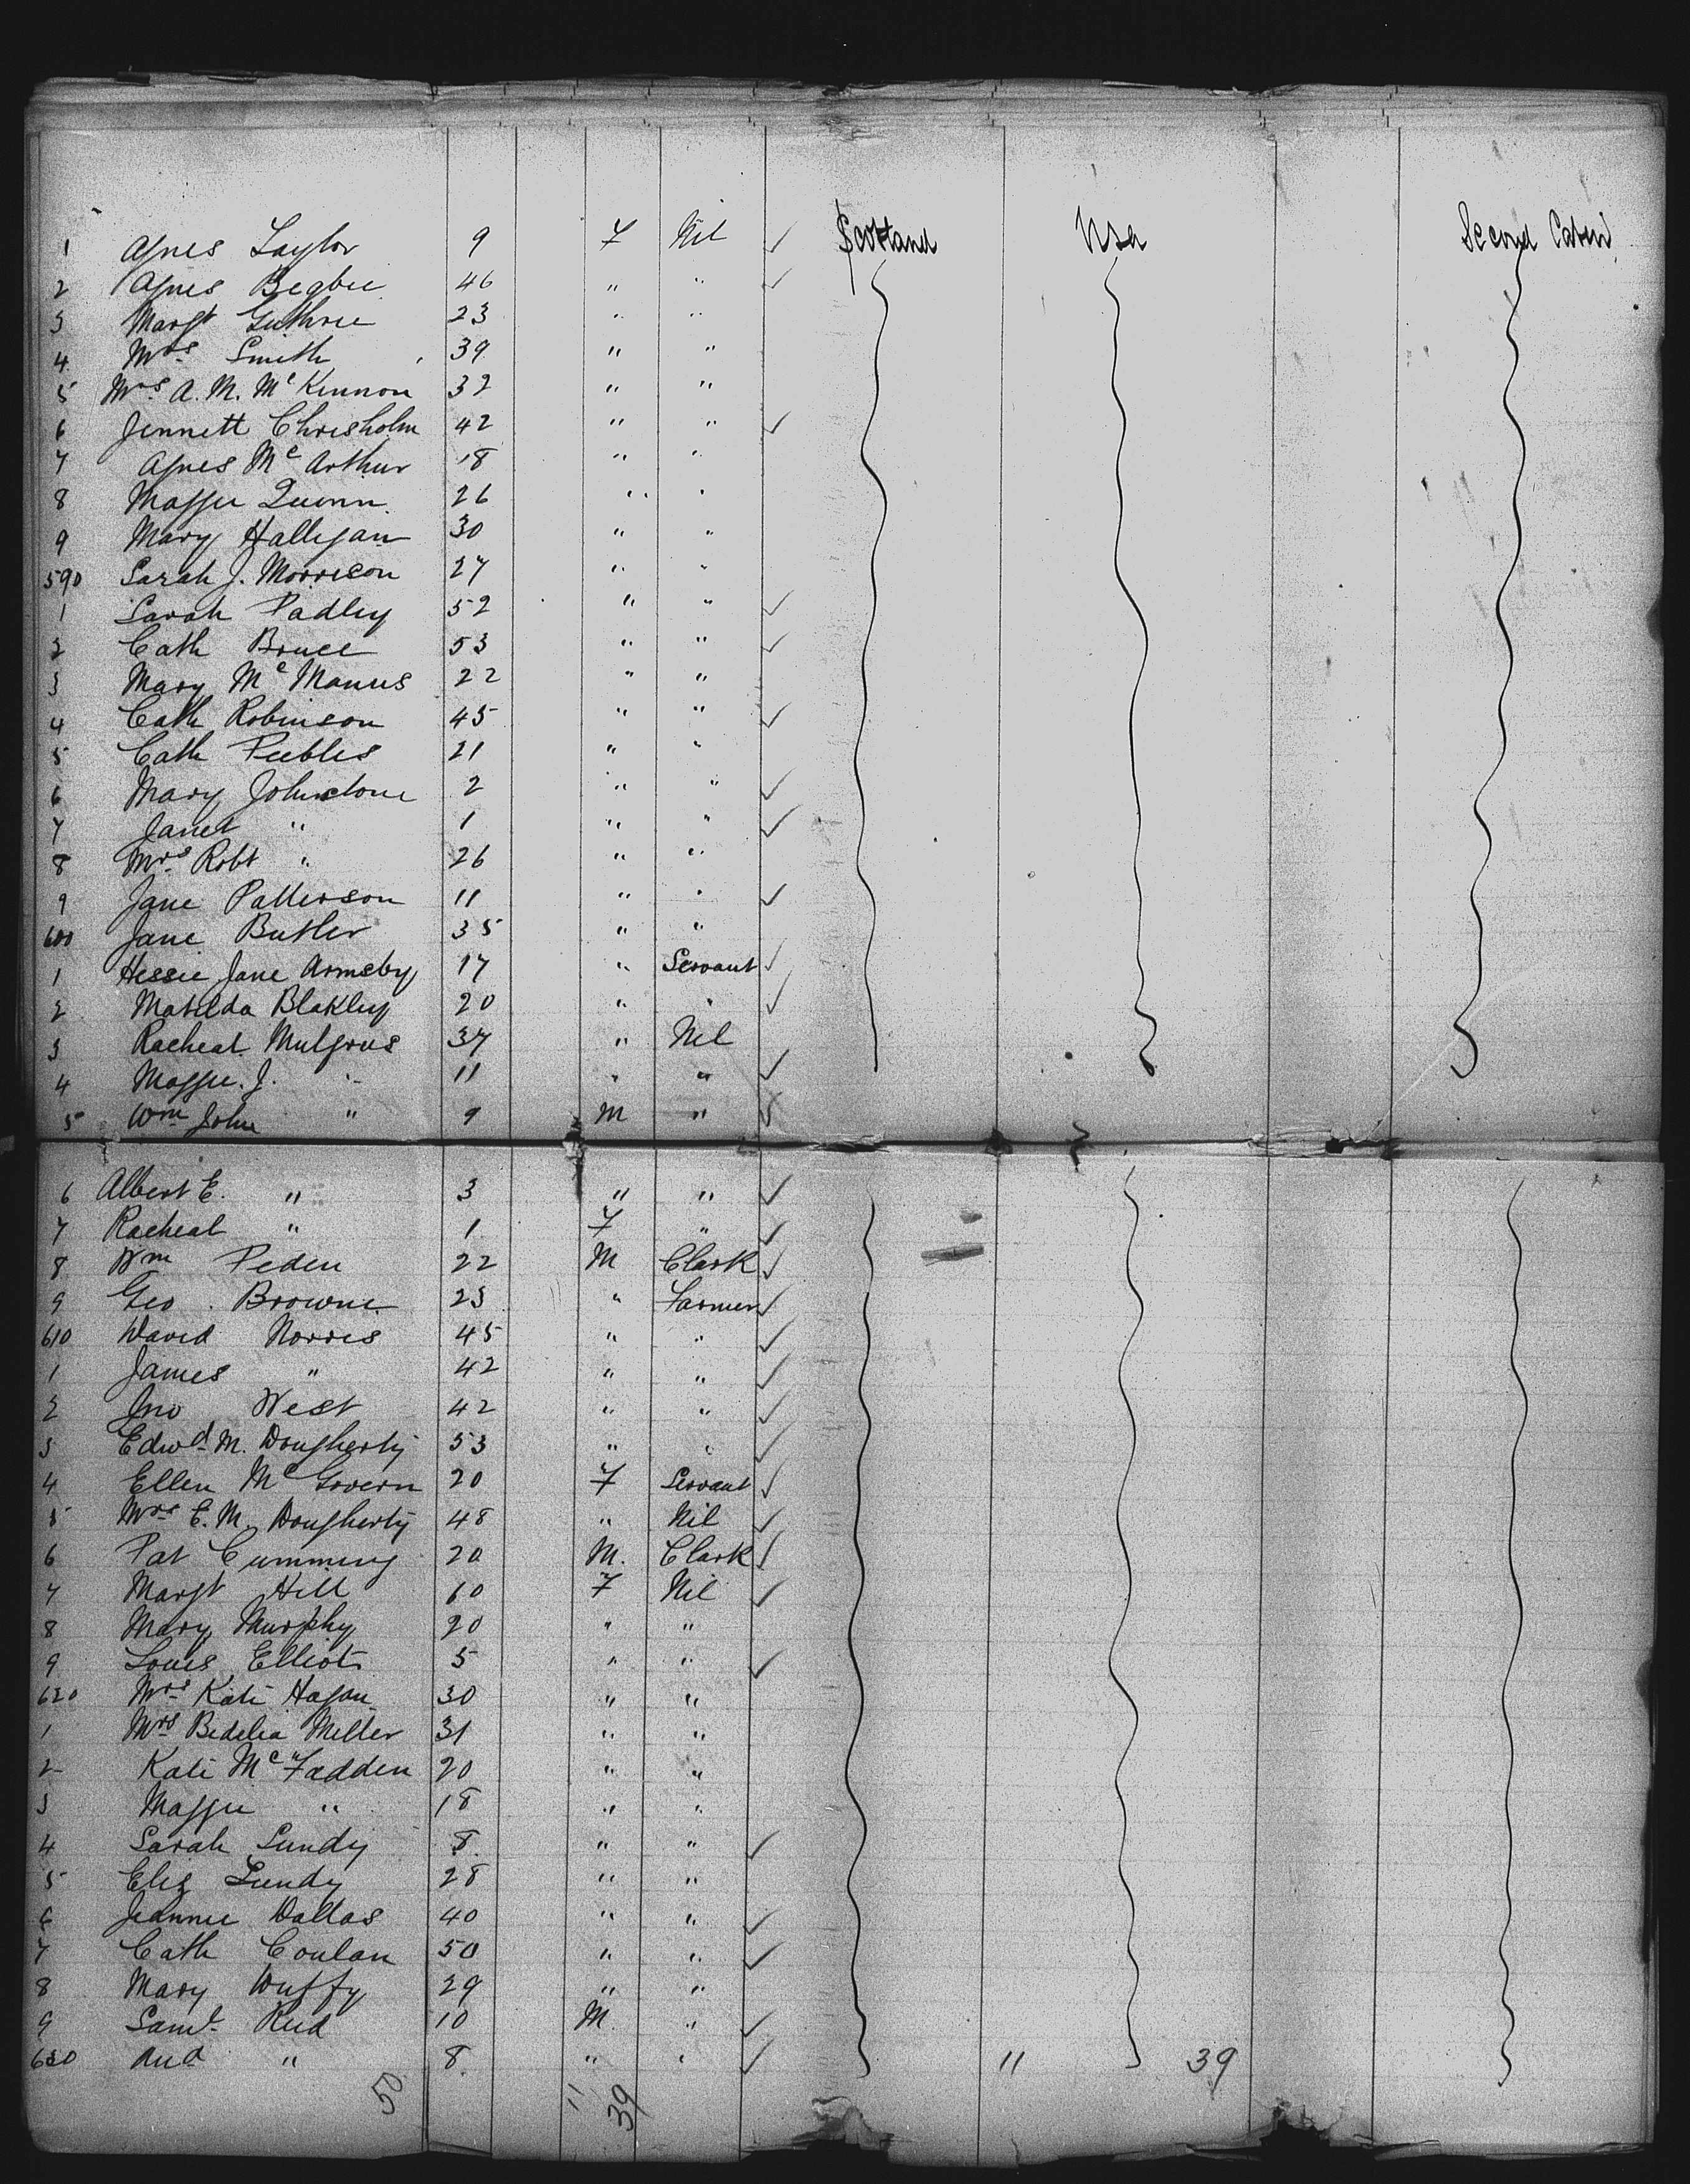 1 Agnes Taylor 9 F Nil ✓ Scotland Usa Second Cabin
2 Agnes Begbie 46 " " ✓
3 Margt Guthrie 23 " "
4 Mrs Smith 39 " "
5 Mrs A. M. McKinnon 32 " "
6 Jennett Chrisholm 42 " " ✓
7 Agnes McArthur 18 " "
8 Maggie Quinn 26 " "
9 Mary Halligan 30 " "
590 Sarah J. Morrison 27 " "
1 Sarah Padley 52 " " ✓
2 Cath Bruce 53 " " ✓
3 Mary McManus 22 " "
4 Cath Robinson 45 " " ✓
5 Cath Peebles 21 " "
6 Mary Johnstone 2 " " ✓
7 Janet " 1 " " ✓
8 Mrs Robt " 26 " "
9 Jane Patterson 11 " " ✓
600 Jane Butler 35 " "
1 Hessie Jane Armsby 17 " Servant ✓
2 Matilda Blakley 20 " " ✓
3 Racheal Mulgrous 37 " Nil
4 Maggie. J. " 11 " " ✓
5 Wm John " 9 M "
6 Albert E. " 3 " " ✓
7 Racheal " 1 F " ✓
8 Wm Peden 22 M Clark ✓
9 Geo. Browne 23 " Farmer ✓
610 David Norris 45 " " ✓
1 James " 42 " " ✓
2 Jno West 42 " " ✓
3 Edwd M. Dougherty 53 " " ✓
4 Ellen McGovern 20 F Servant ✓
5 Mrs E. M. Dougherty 48 " Nil ✓
6 Pat Cumming 20 M. Clark ✓
7 Margt Hill 60 F Nil ✓
8 Mary Murphy 20 " "
9 Louis Elliot 5 " " ✓
620 Mrs Kate Hagan 30 " "
1 Mrs Bedelia Miller 31 " "
2 Kate McFadden 20 " "
3 Maggie " 18 " "
4 Sarah Lundy 8 " " ✓
5 Eliz Lundy 28 " "
6 Jeannie Dallas 40 " " ✓
7 Cath Coulan 50 " " ✓
8 Mary Duffy 29 " "
9 Saml Reid 10 M " ✓
630 And " 8 " " ✓ 11 39
50 11 39